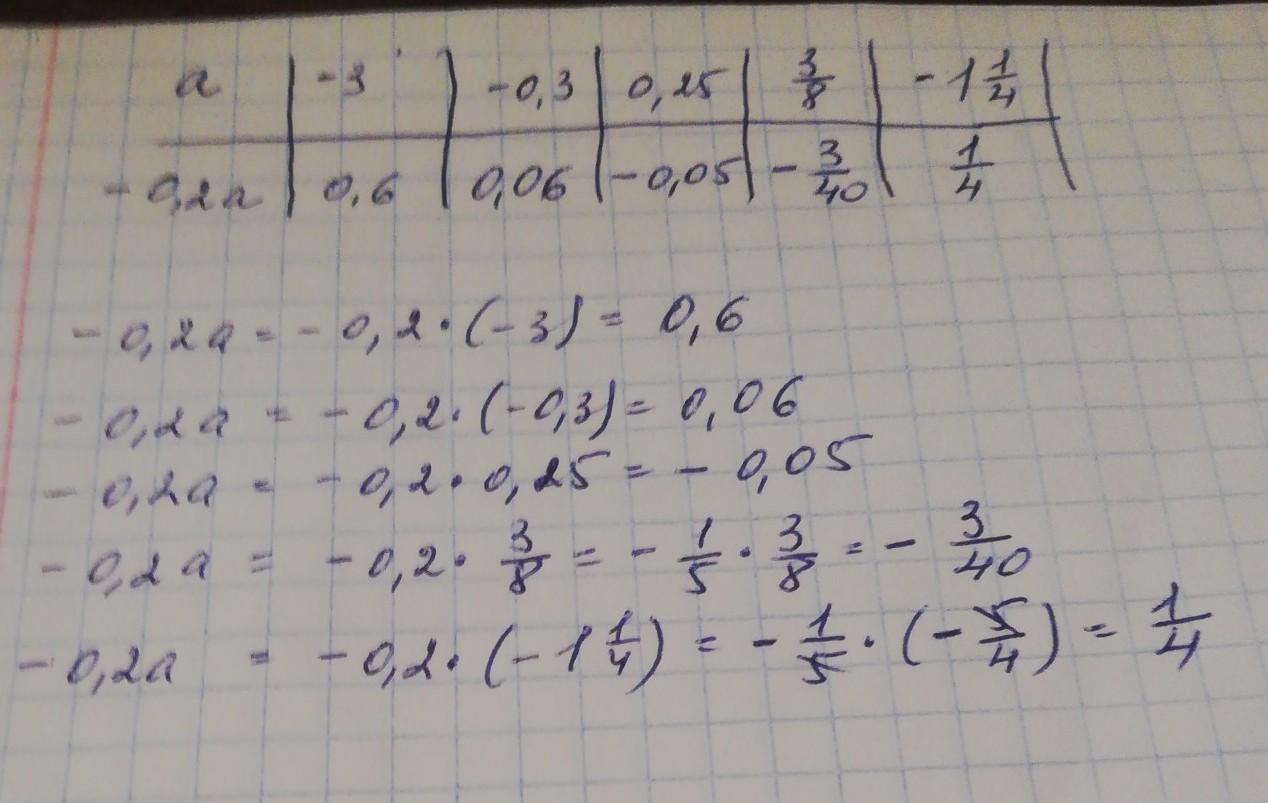 a | -3 | -0,3 | 0,25 | 3/8 | -1 1/4 |
-0,2a | 0,6 | 0,06 | -0,05 | -3/40 | 1/4 |
-0,2a = -0,2·(-3) = 0,6
-0,2a = -0,2·(-0,3) = 0,06
-0,2a = -0,2·0,25 = -0,05
-0,2a = -0,2·3/8 = -1/5·3/8 = -3/40
-0,2a = -0,2·(-1 1/4) = -1/5·(-5/4) = 1/4